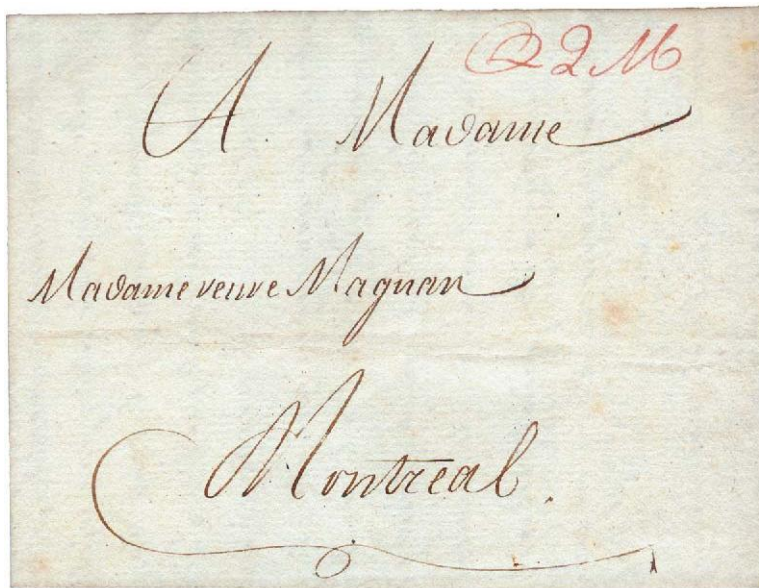 2 M
A. Madame
Madame veuve Magnan
Montreal.